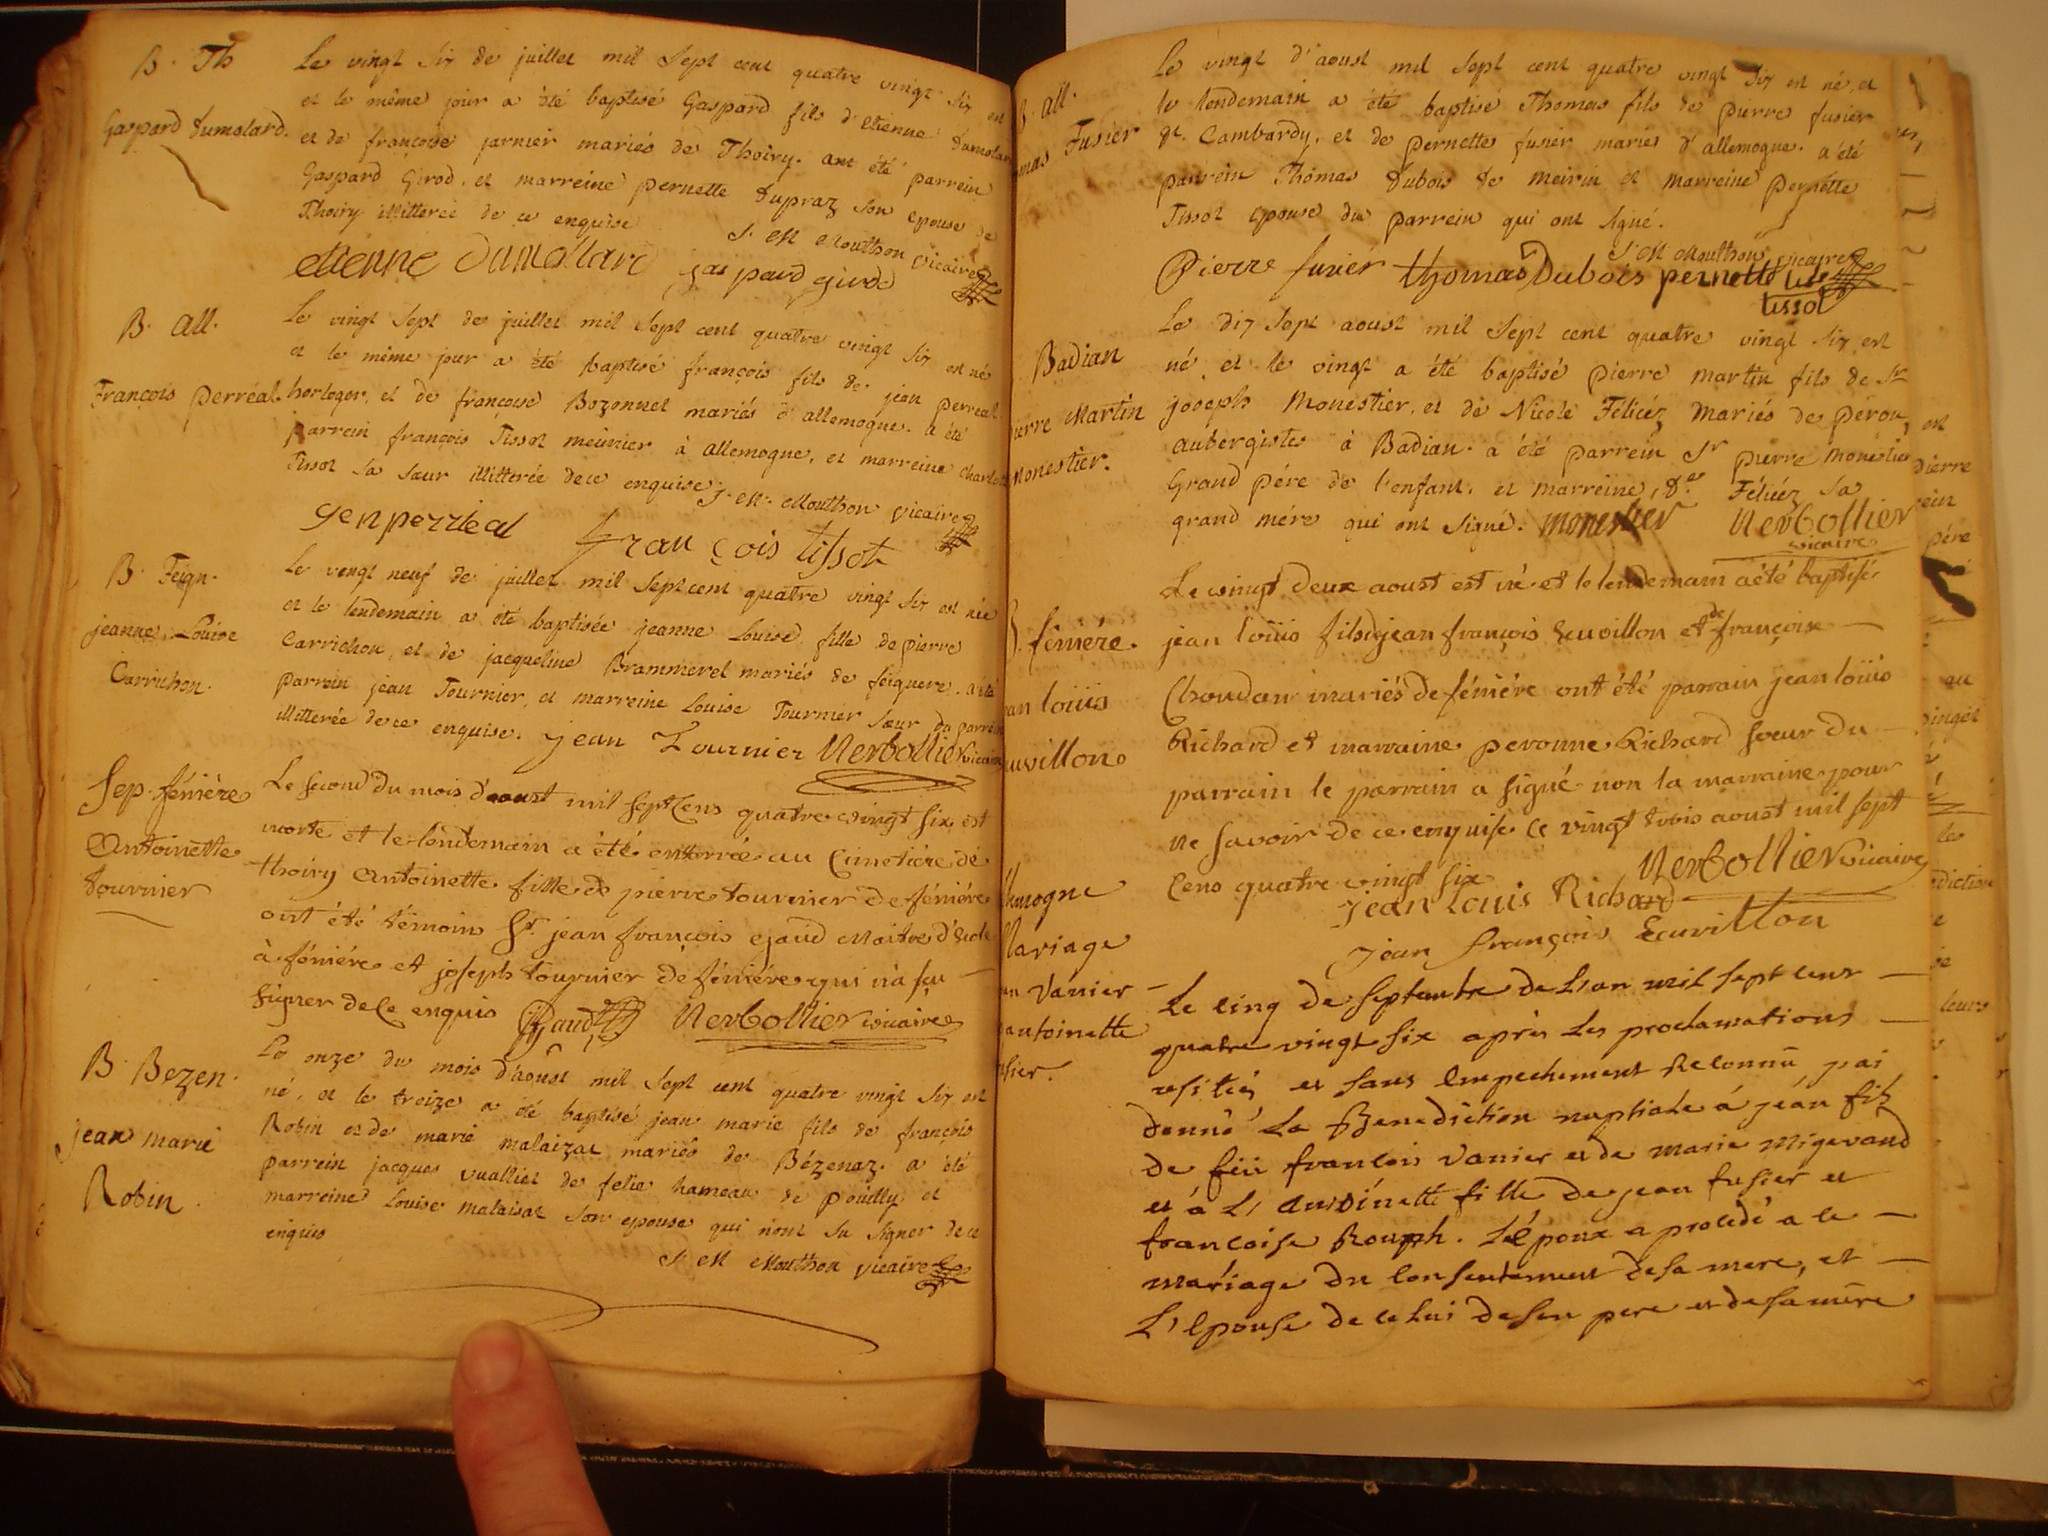 B. Th
Gaspard dumolard.
Le vingt six de juillet mil sept cent quatre vingt six est
et le même jour a été baptisé Gaspard fils d'etienne dumolard
et de françoise jarnier mariés de Thoiry. ont été parrein
Gaspard Girod, et marreine pernette dupraz son epouse de
Thoiry illitterée de ce enquise
J. M Mouthon vicaire
etienne Dumollard gaspard girod
B. all.
François perréal.
Le vingt sept de juillet mil sept cent quatre vingt six est né
et le même jour a été baptisé françois fils de jean perreal
horloger, et de françoise Bozonnet mariés d'allemogne. a été
parrein françois Tissot meünier à allemogne, et marreine charlotte
Tissot sa sœur illitterée de ce enquise J. M. Mouthon vicaire
françois tissot
B. Feign.
jeanne Louise
Carrichon.
Le vingt neuf de juillet mil sept cent quatre vingt six est née
et le lendemain a été baptisée jeanne Louise fille de pierre
Carrichon, et de jacqueline Brammerel mariés de feiguere. a été
parrein jean Tournier, et marreine Louise Tournier sœur du parrein
illitterée de ce enquise. jean Tournier Nerbollier vicaire
Sep. féniére
Antoinette
tournier
Le second du mois d'aoust mil sept Cens quatre vingt six, est
morte et le lendemain a été enterrée au Cimetiére de
thoiry Antoinette fille de pierre tournier de féniére
ont été témoin Sr. jean françois ejaud Maitre d'Ecole
à féniére et joseph tournier de féniére qui n'a sçu
signer de Ce enquis Ejaud Nerbollier vicaire
B Bezen.
jean marie
Robin.
Le onze du mois d'aoust mil sept cent quatre vingt six est
né, et le treize a été baptisé jean marie fils de françois
Robin et de marie malaizat mariés de Bézenaz. a été
parrein jacques vualliet de felie hameau de pouilly et
marreine Louise malaisat son epouse qui n'ont su signer de ce
enquis
J. M Mouthon vicaire
B. all.
Thomas Fusier
Le vingt d'aoust mil sept cent quatre vingt six est né, et
le lendemain a été baptisé Thomas fils de pierre fusier
dt. Cambardy, et de pernette fusier mariés d'allemogne. a été
parrein Thomas dubois de meirin et marreine pernette
Tissot epouse du parrein qui ont signé.
J. M Mouthon vicaire
Pierre fusier thomas Dubois pernette
tissot
Badian
pierre Martin
Monestier.
Le dix sept aoust mil sept cent quatre vingt six est
né, et le vingt a été baptisé pierre martin fils de Sr
joseph Monestier, et de Nicole Félicéz mariés de péron,
aubergistes à Badian. a été parrein Sr pierre monestier
Grand pére de l'enfant, et marreine, de. Féliéz sa
grand mére qui ont signé. monestier Nerbollier
vicaire
B. féniére.
jean loüis
Ecuvillon
Le vingt deux aoust est né et le lendemain a été baptisé
jean loüis fils de jean françois Ecuvillon et de françoise
Choudan mariés de féniére ont été parrain jean loüis
Richard et marraine peronne Richard soeur du
parrain le parrain a signé non la marraine pour
ne savoir de ce enquise Ce vingt trois aoust mil sept
Cens quatre vingt six Nerbollier vicaire
jean Louis Richard
jean françois Ecuvillon
allemogne
Mariage
Vanier
antoinette
fusier.
Le cinq de septembre de L'an mil sept cens
quatre vingt six après Les proclamations
resitéz et sans Empechement Reconnü j'ai
donné La Benediction nuptiale á jéan fils
de feü françois Vanier et de marie Migevand
et á L'Antoinette fille de jean fusier et
francoise Rouph. L'époux a procédé a ce
mariage du Consentement de sa mere, et
L'Epouse de celui de son pere et de sa mère